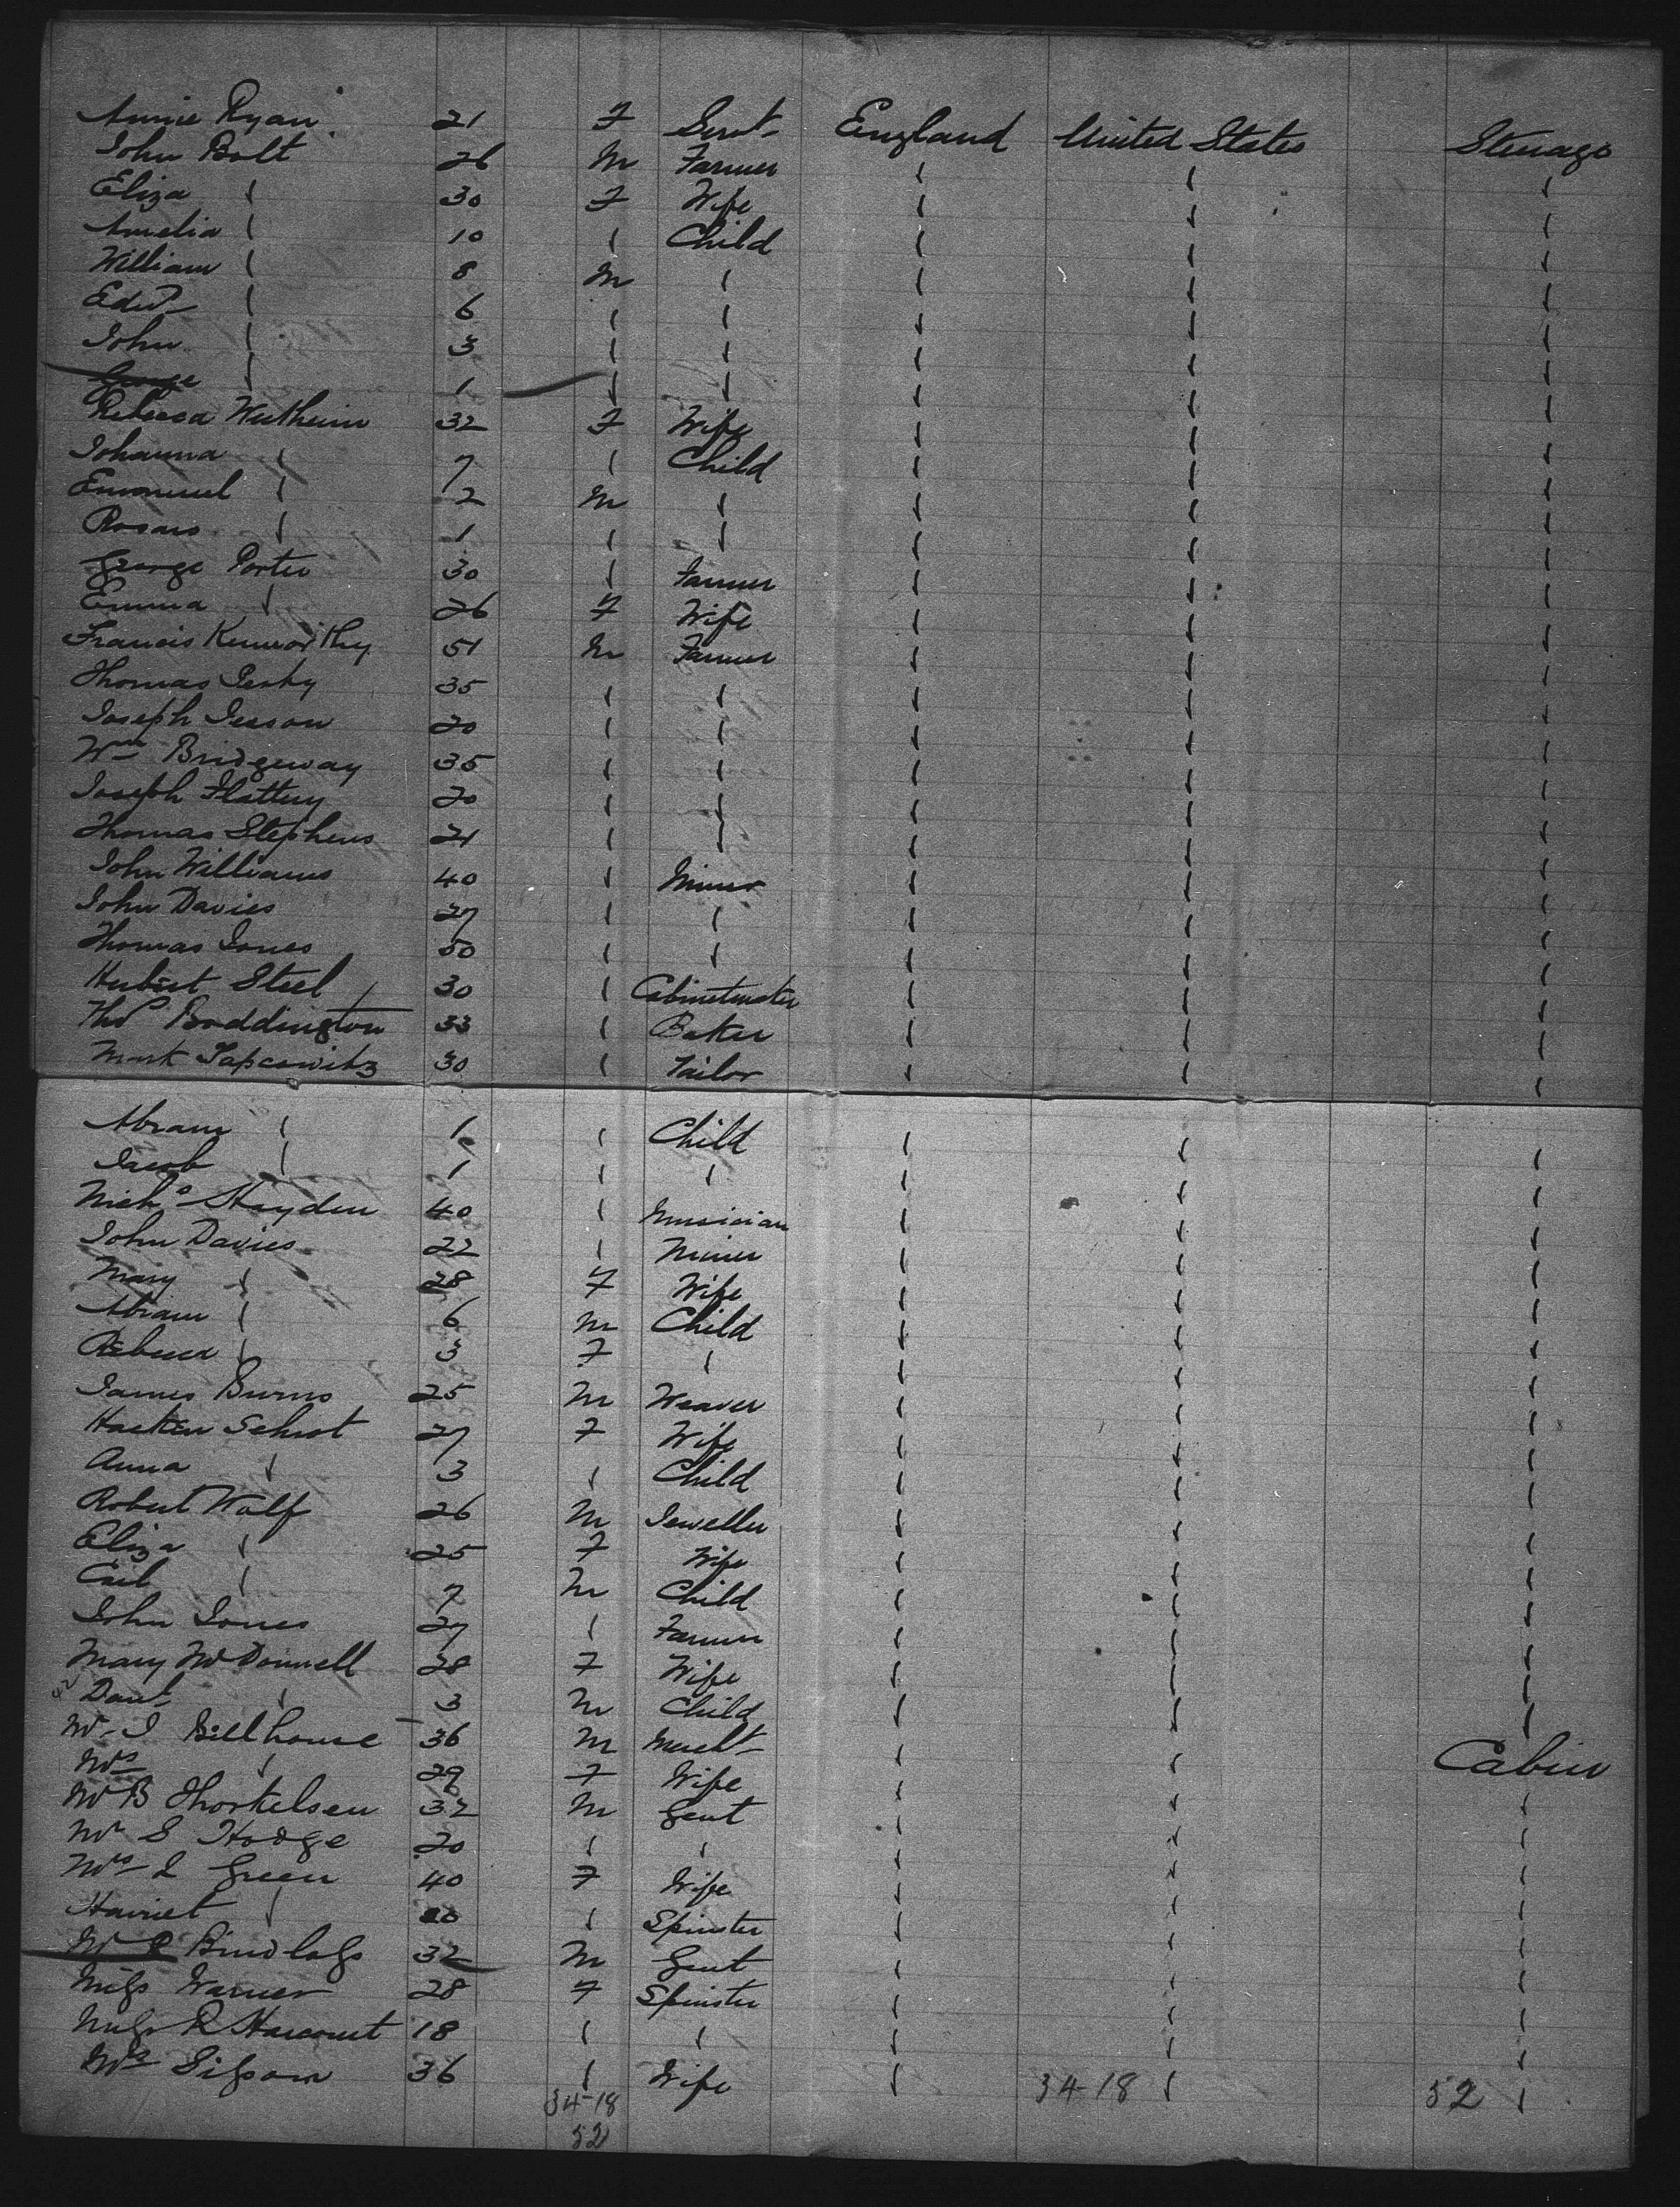 Annie Ryan 21 F Servt- England United States Steerage
John Bolt 26 M Farmer
Eliza 30 F Wife
Amelia 10 Child
William 8 M
Edwd 6
John 3
George 1
Rebecca Wertheim 32 F Wife
Johanna 7 Child
Emanuel 2 M
1
George Porter 30 Farmer
Emma 26 F Wife
Francis Kenworthy 51 M Farmer
Thomas 35
Joseph 20
Wm Bridgeway 35
Joseph Flattery 20
Thomas Stephens 21
John Williams 40 Miner
John Davies 27
Thomas Jones 50
Herbert Steel 30 Cabinetmaker
Thos Boddington 33 Baker
Mark 30 Tailor
Abram 1 Child
Jacob 1
Nichs Hayden 40 Musician
John Davies 22 Miner
Mary 28 F Wife
Abram 6 M Child
Rebecca 3 F
James Burns 25 M Weaver
27 F Wife
Anna 3 Child
Robert Wolf 26 M Jeweller
Eliza 25 F Wife
Carl 7 M Child
John Jones 27 Farmer
Mary McDonnell 28 F Wife
Danl 3 M Child
Mr J Billhouse 36 M Mercht- Cabin
Mrs 29 F Wife
Mr B Thorkelsen 32 M Gent
Mr S Hodge 20
Mrs I Green 40 F Wife
Harriet 20 Spinster
32 M Gent
Miss Warner 28 F Spinster
Miss R Harcourt 18
Mrs 36 Wife
34-18 34-18 52
52